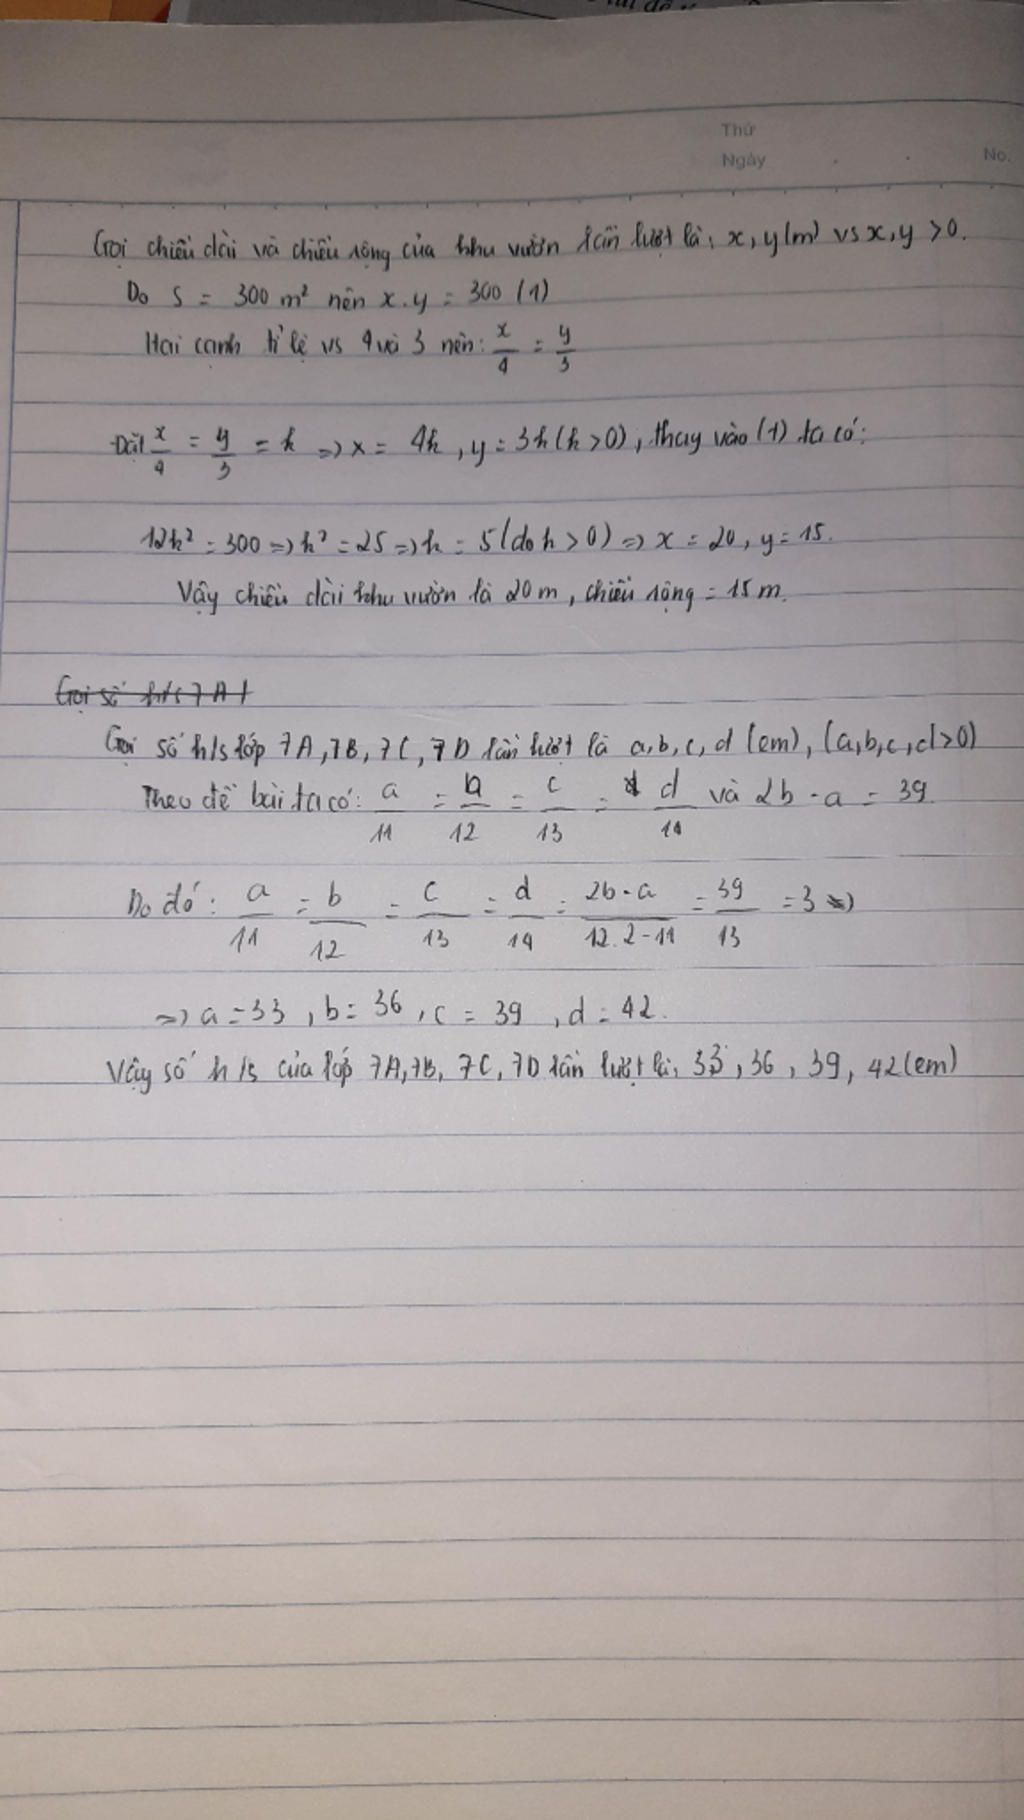 Thứ
Ngày
No.
Gọi chiều dài và chiều rộng của khu vườn lần lượt là: x, y (m) vs x, y > 0.
Do S = 300 m² nên x.y = 300 (1)
Hai cạnh tỉ lệ vs 4 và 3 nên: x/4 = y/3
Đặt x/4 = y/3 = k => x = 4k, y = 3k (k > 0), thay vào (1) ta có:
12k² = 300 => k² = 25 => k = 5 (do k > 0) => x = 20, y = 15.
Vậy chiều dài khu vườn là 20 m, chiều rộng = 15 m.
Gọi số h/s 7A
Gọi số h/s lớp 7A, 7B, 7C, 7D lần lượt là a, b, c, d (em), (a, b, c, d > 0)
Theo đề bài ta có: a/11 = b/12 = c/13 = d/14 và 2b - a = 39
Do đó: a/11 = b/12 = c/13 = d/14 = 2b - a/12.2 - 11 = 39/13 = 3
=> a = 33, b = 36, c = 39, d = 42.
Vậy số h/s của lớp 7A, 7B, 7C, 7D lần lượt là: 33, 36, 39, 42 (em)